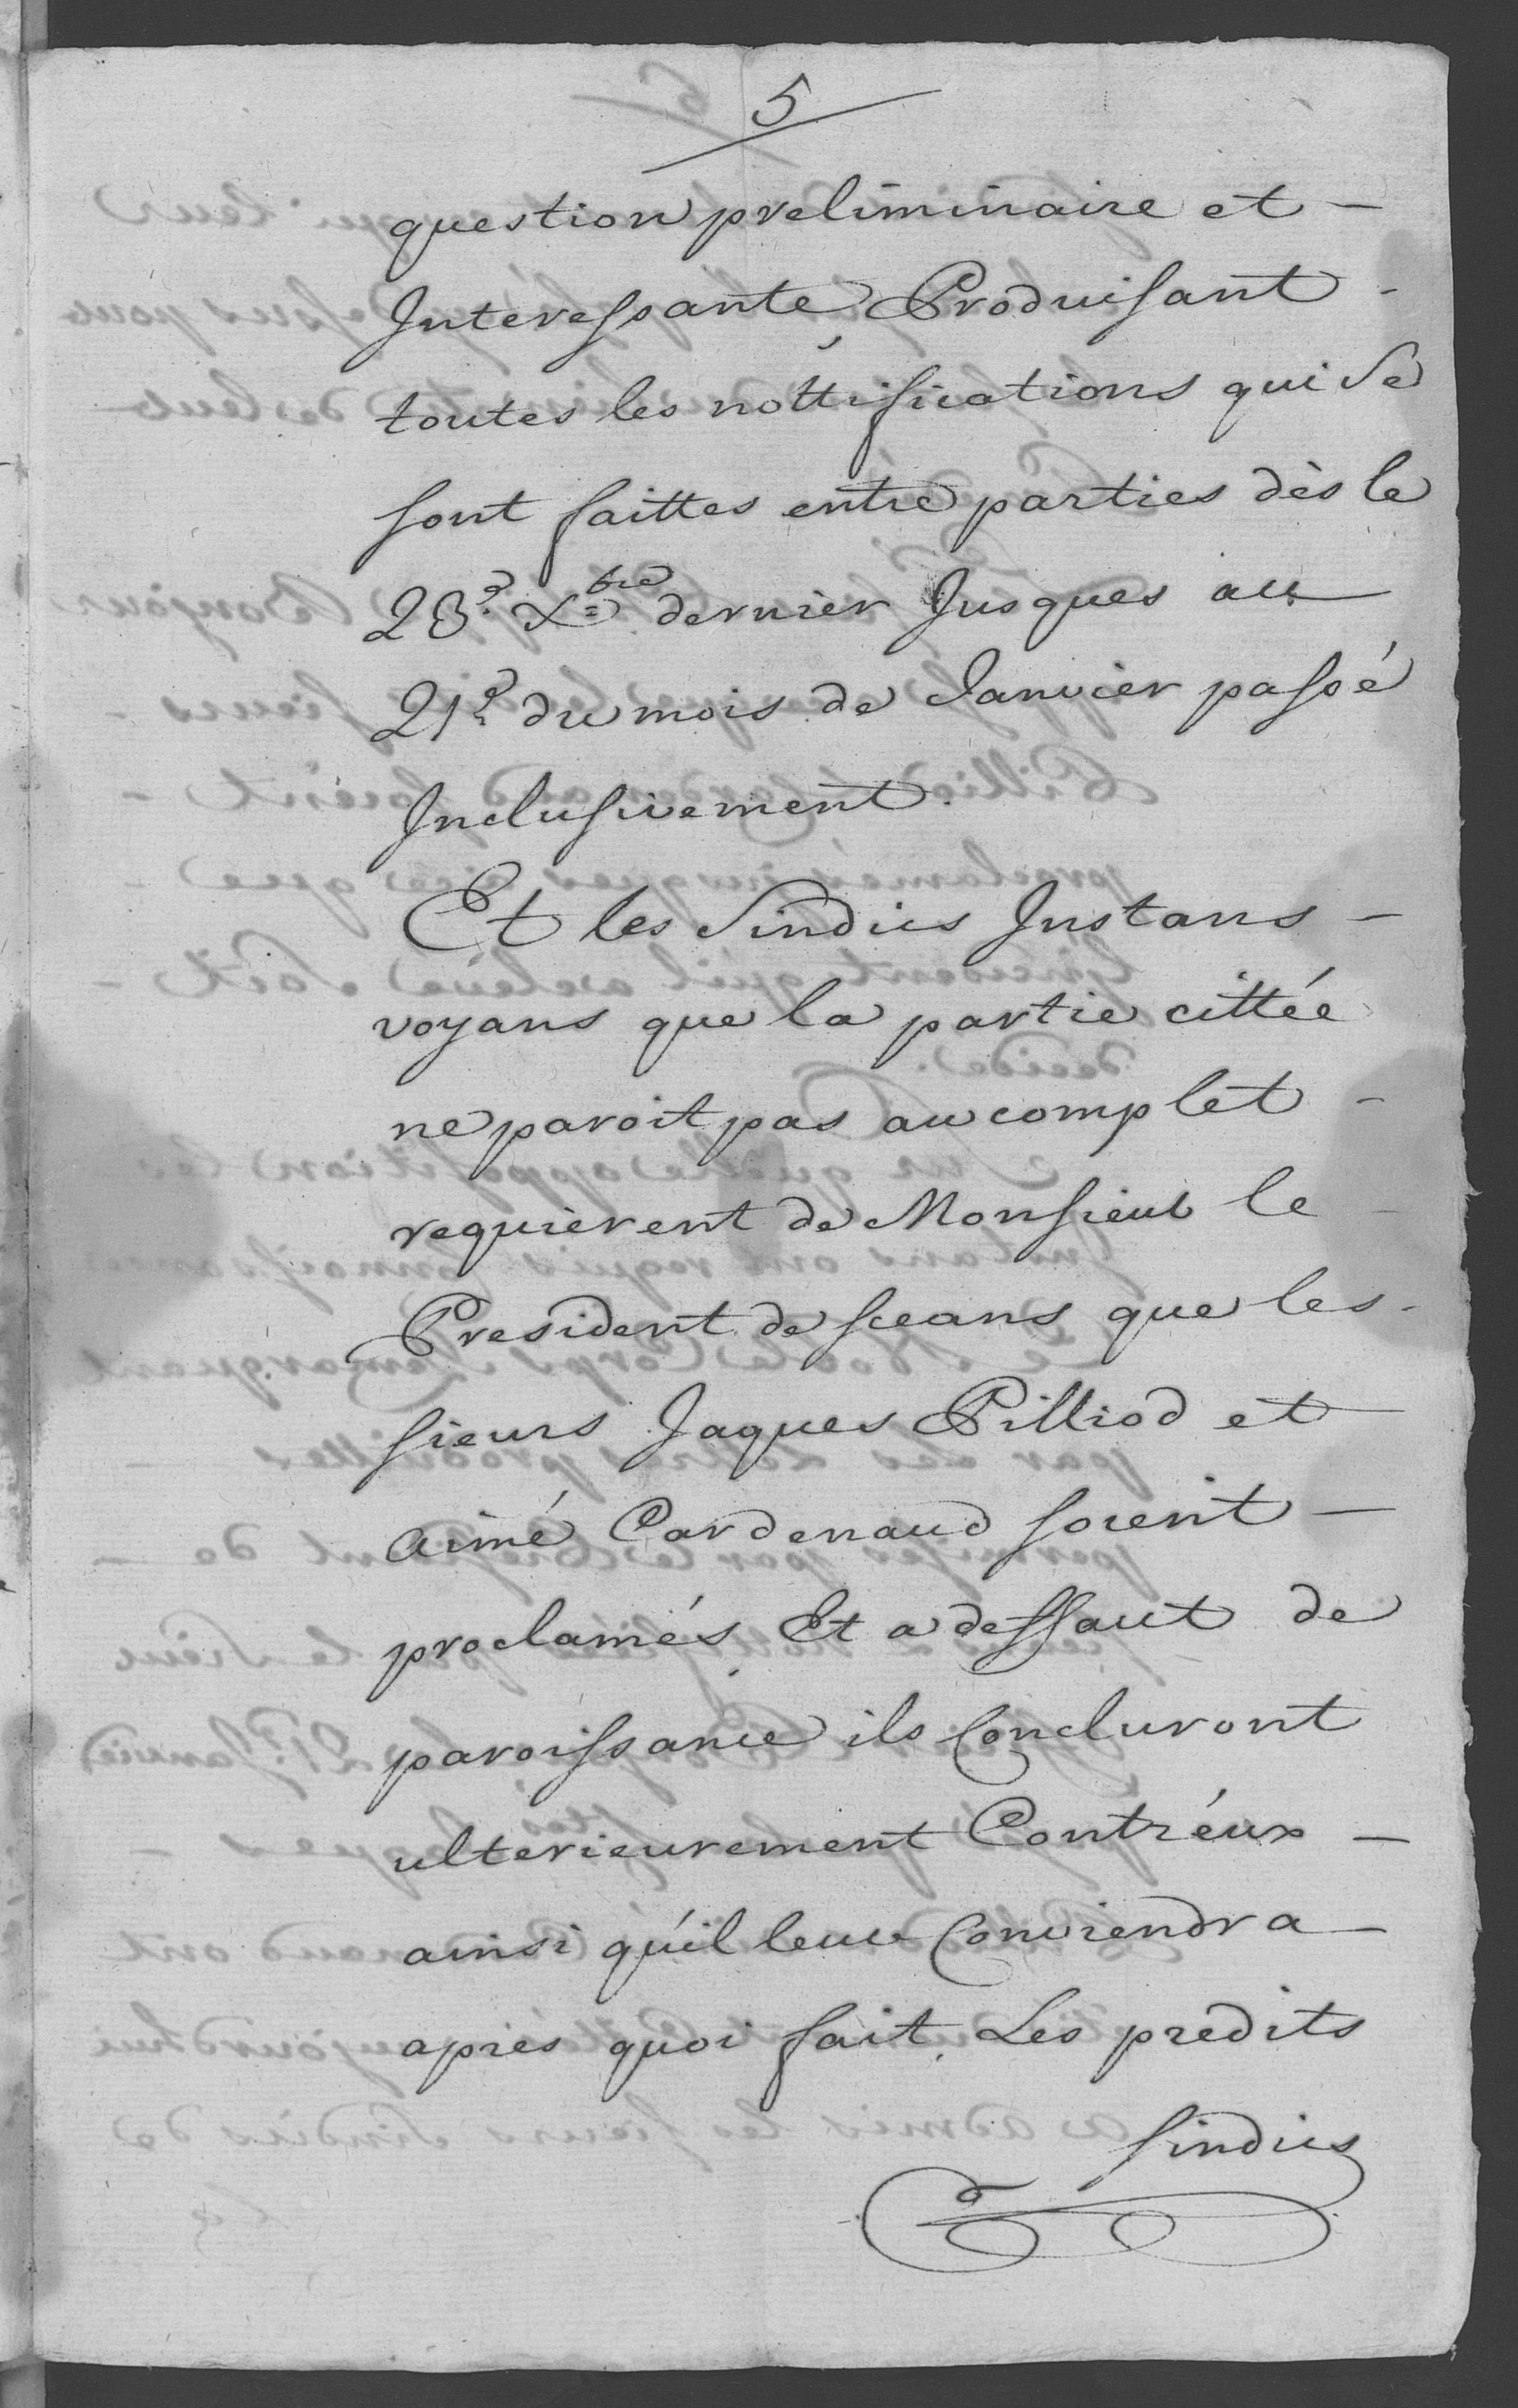 5
question preliminaire et -
Interessante, Produisant -
toutes les nottifications qui se
sont faittes entre parties dès le
23e. Xbre dernier Jusques au
21e. du mois de Janvier passé
Inclusivement.
Et les Sindics Instans -
voyans que la partie cittée
ne paroit pas au complet -
requièrent de Monsieur le
President de sceans que les -
sieurs Jaques Pilliod et
aimé Cardenaud soient -
proclamés, Et a deffaut de
paroissance ils Concluront
ulterieurement Contr'eux -
ainsi qu'il leur Conviendra -
apries quoi fait, Les predits
Sindics